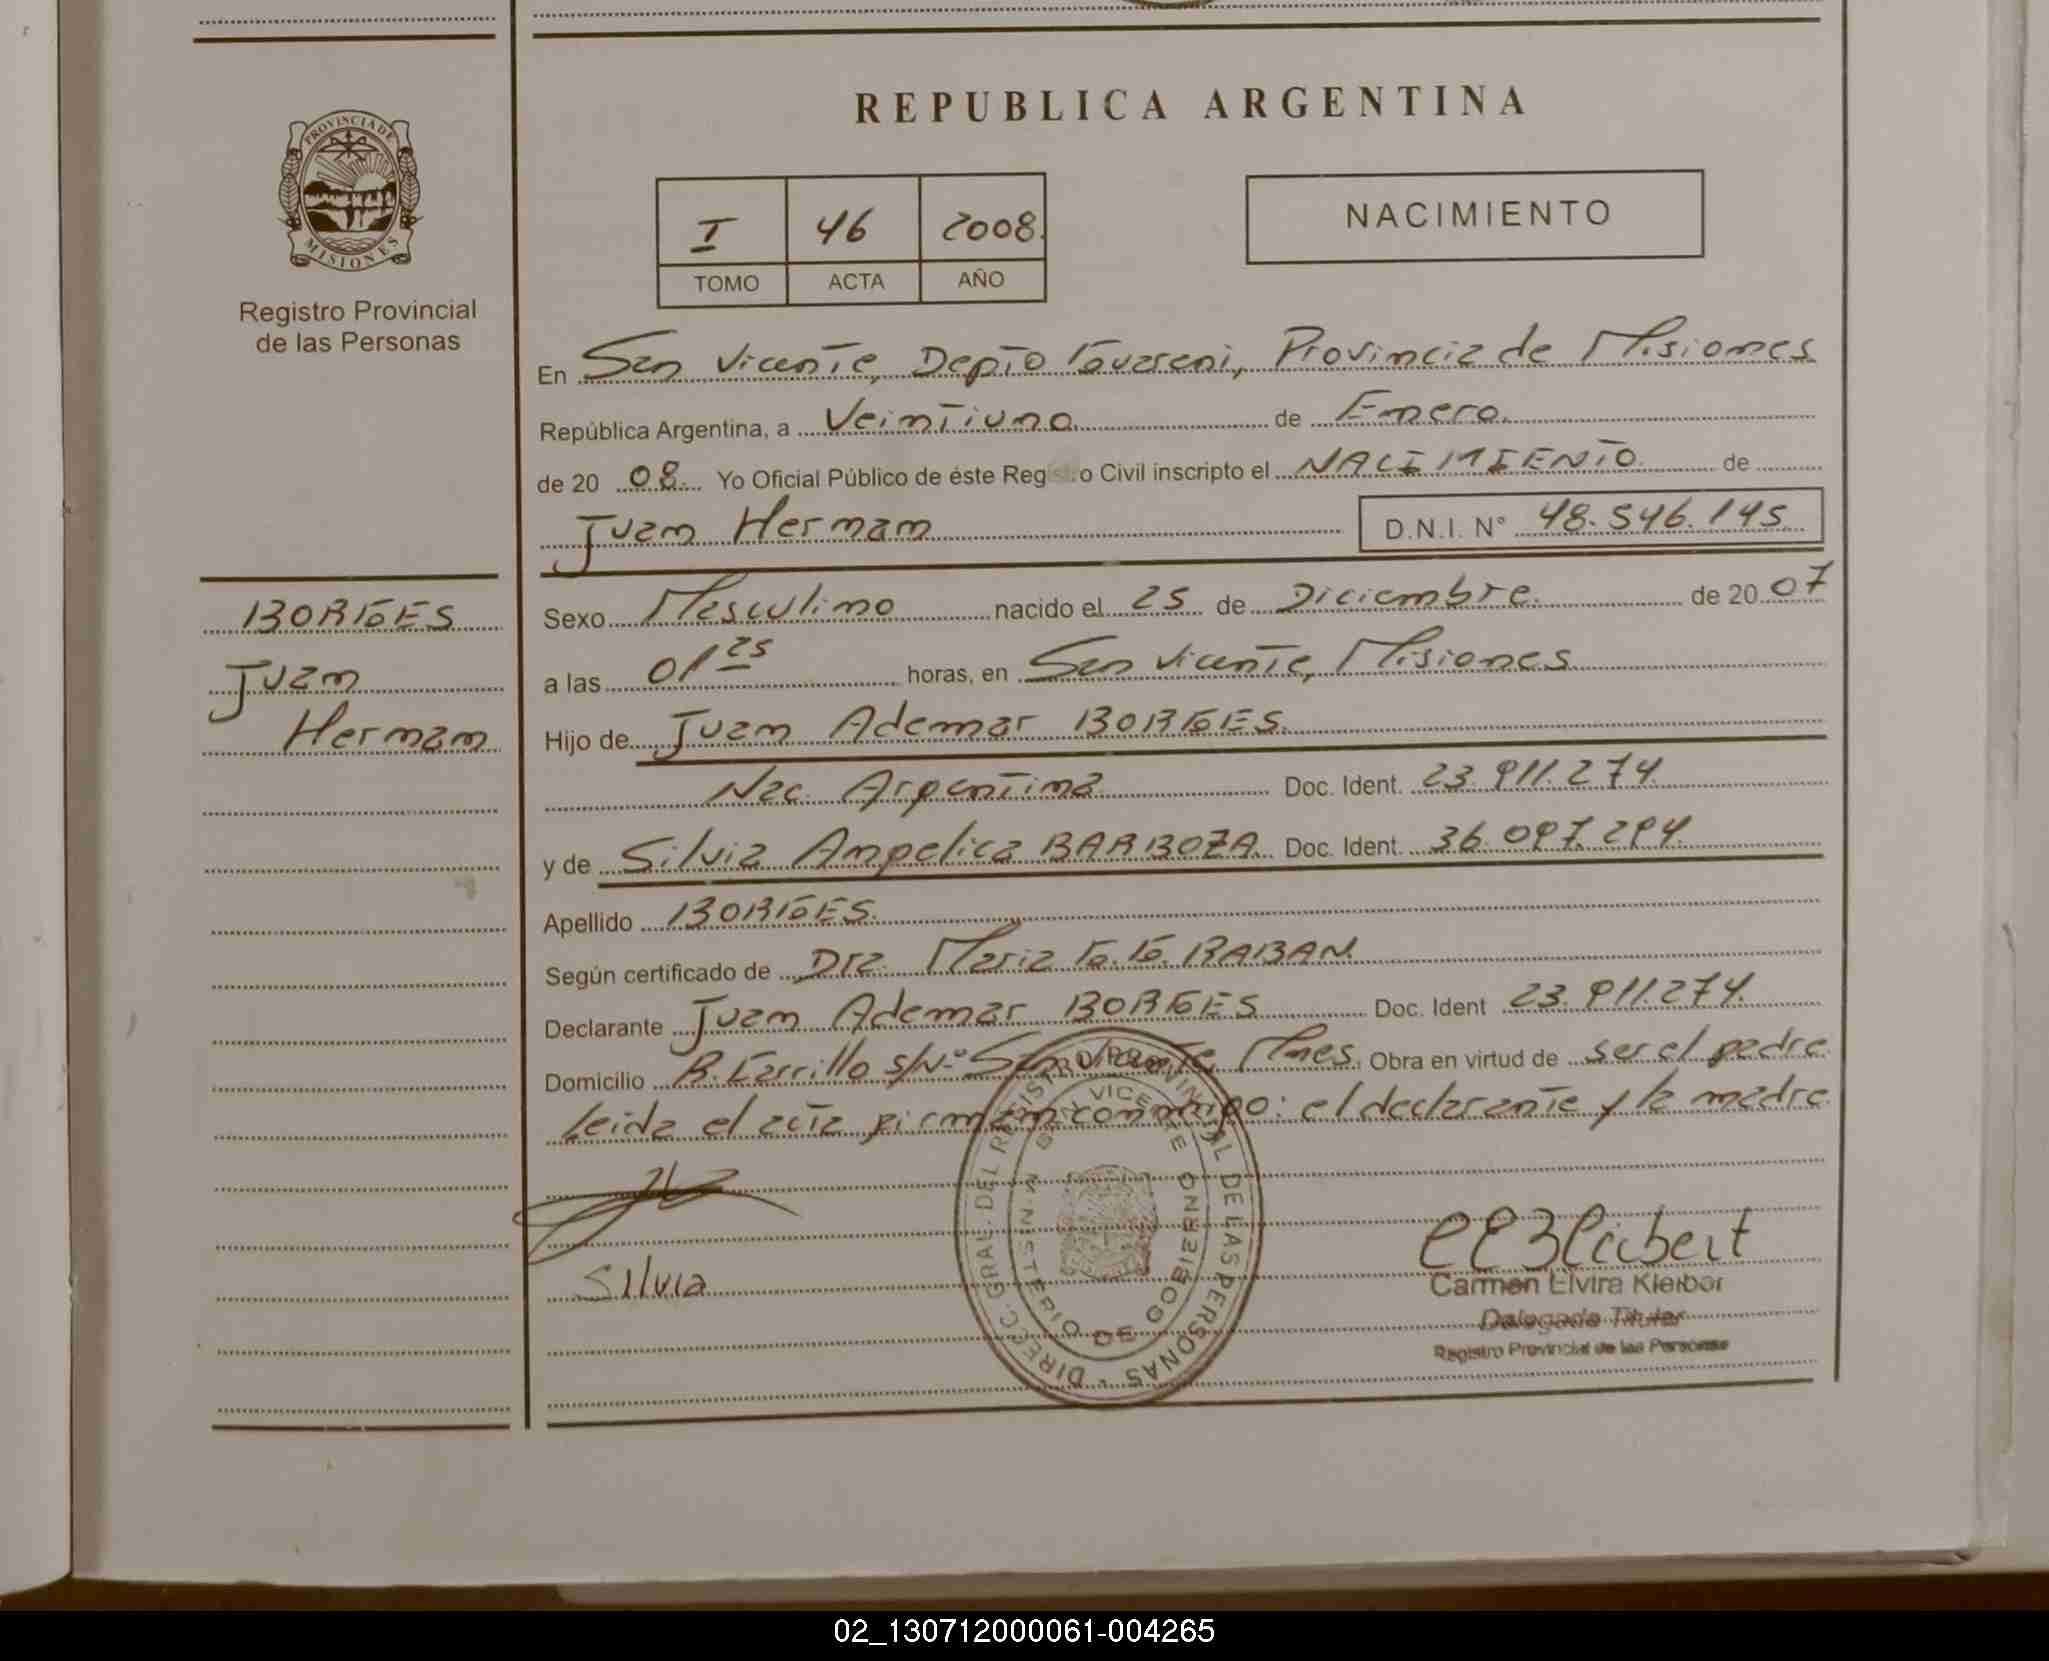 REPUBLICA ARGENTINA
PROVINCIA DE
MISIONES
Registro Provincial
de las Personas
I 46 2008.
TOMO ACTA AÑO
NACIMIENTO
En San Vicente, Depto Guarani, Provincia de Misiones
República Argentina, a Veintiuno de Enero.
de 20 08. Yo Oficial Público de éste Registro Civil inscripto el NACIMIENTO de
Juan Hernan D.N.I. N° 48.546.145
BORGES
Juan
Hernan
Sexo Masculino nacido el 25 de Diciembre. de 20 07
a las 01 25 horas, en San Vicente, Misiones
Hijo de Juan Ademar BORGES.
Nac. Argentina Doc. Ident. 23.911.274.
y de Silvia Angelica BARBOZA Doc. Ident. 36.097.294.
Apellido BORGES.
Según certificado de Dra. Maria G. G. RABAN.
Declarante Juan Ademar BORGES Doc. Ident 23.911.274.
Domicilio B. Carrillo s/Nº San Vicente Mnes. Obra en virtud de ser el padre
Leida el acta firman conmigo: el declarante y la madre
Silvia
DIRECC. GRAL. DEL REGISTRO PROVINCIAL DE LAS PERSONAS
SAN VICENTE
MINISTERIO DE GOBIERNO
Carmen Elvira Kleibor
Delegado Titular
Registro Provincial de las Personas
02_130712000061-004265